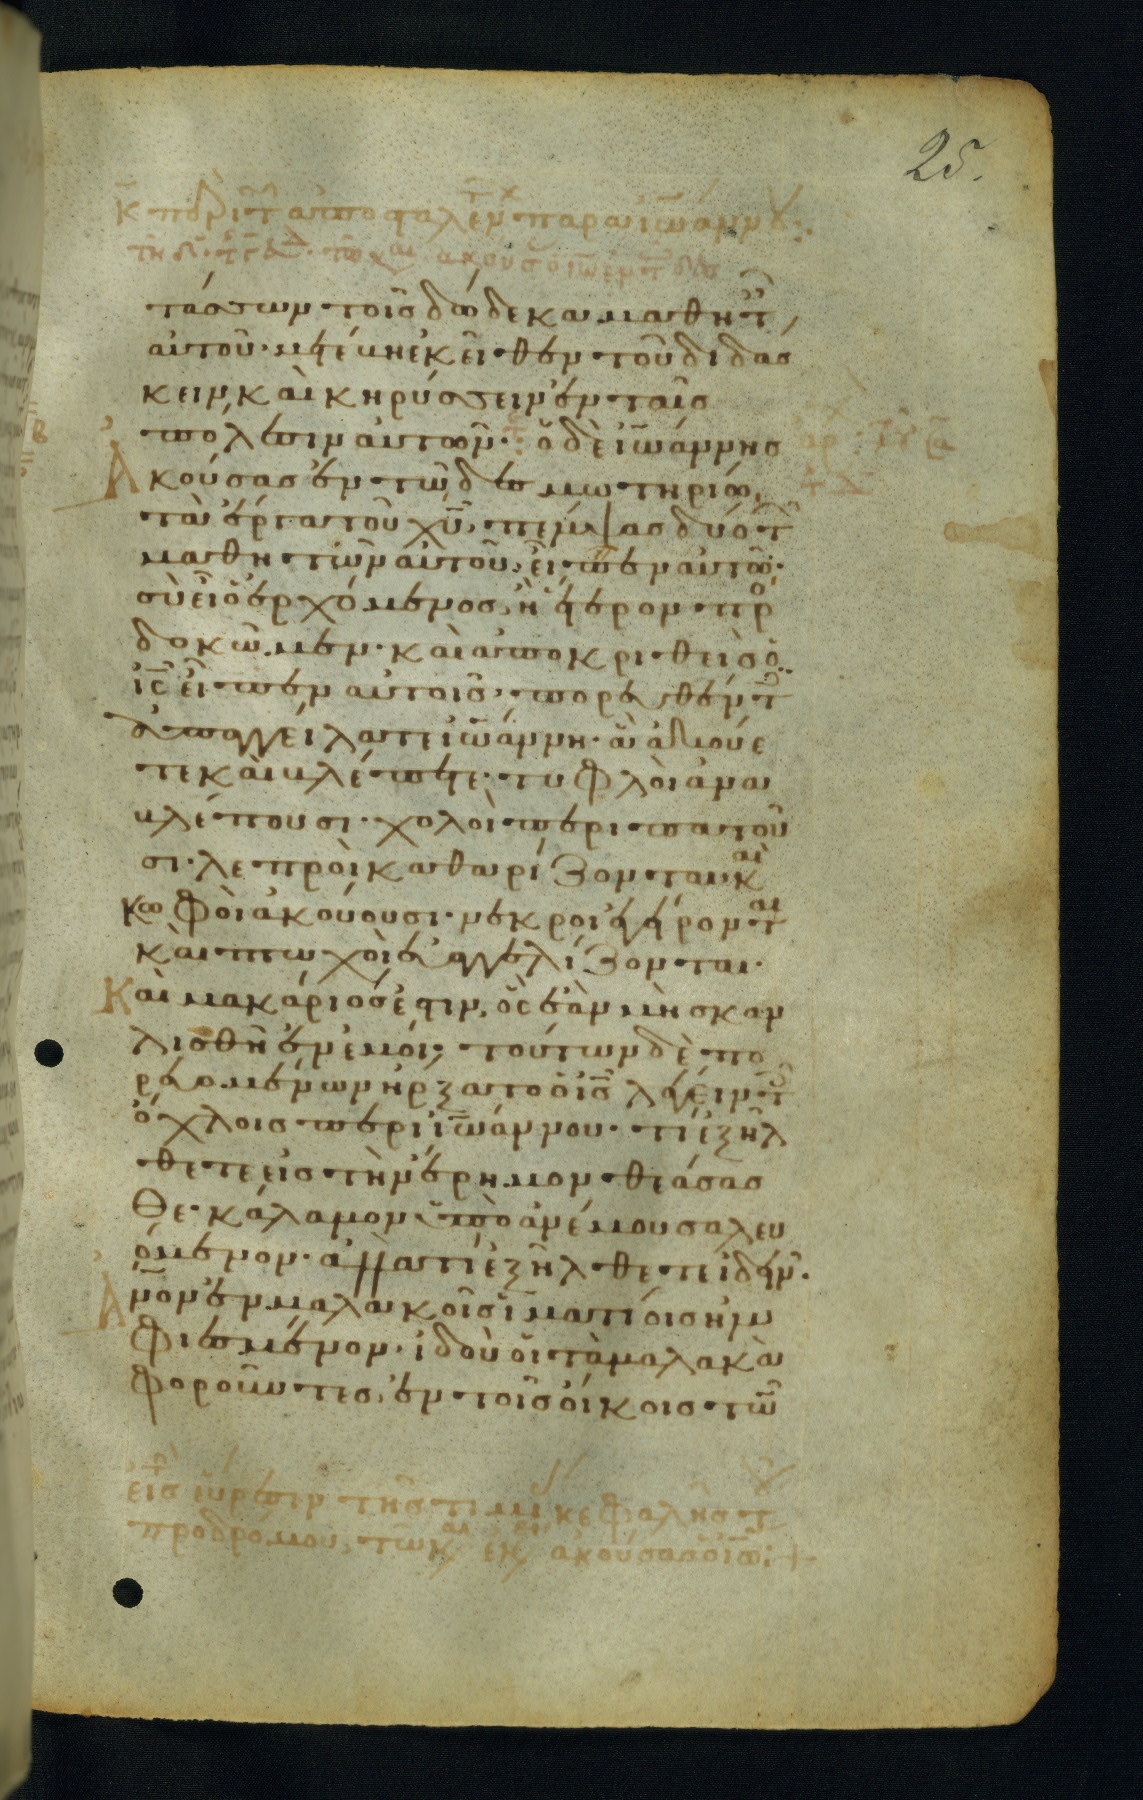 25.
κ περὶ τ ἀποσταλέν παρα ἰωάννου:
τάσσων τοῖς δώδεκα μαθητ
αυτοῦ· μετέβη ἐκεῖθεν τοῦ διδασ
κειν καὶ κηρύσσειν ἐν ταῖς
πόλεσιν αὐτῶν· ὁ δὲ ἰωάννης
Ἀκούσας ἐν τῶ δεσμωτηρίω,
τὰ ἔργα τοῦ χυ, πέμψας δύο τ
μαθητῶν αὐτοῦ, εἶπεν αὐτῶ·
σὺ εἶ ὁ ἐρχόμενος, ἢ ἕτερον προ
δοκῶμεν· καὶ ἀποκριθεὶς ὁ
ις εἶπεν αὐτοῖς, πορευθέντ
ἀπαγγείλατε ἰωάννη· ἃ ἀκούε
τε καὶ βλέπετε· τυφλοὶ ἀνα
βλέπουσι· χολοὶ περιπατοῦ
σι· λεπροὶ καθαρίζονται κ
κωφοὶ ἀκούουσι· νεκροὶ ἐγείροντ
καὶ πτωχοὶ εὐαγγελίζονται·
Καὶ μακάριός ἐστιν, ὃς ἐὰν μὴ σκαν
λισθῆ ἐν ἐμοί· τούτων δὲ πο
ρευομένων ἤρξατο ὁ ις λέγειν τ
ὄχλοις περὶ ἰωάννου· τί ἐξήλ
θετε εἰς τὴν ἔρημον θεάσασ
θε· κάλαμον ὑπὸ ἀνέμου σαλευ
όμενον· ἀλλὰ τί ἐξήλθετε ἰδεῖν·
Ἀνον ἐν μαλακοῖς ἱματίοις ἠμ
φιεσμένον· ἰδοὺ οἱ τὰ μαλακὰ
φοροῦντες, ἐν τοῖς οἴκοις τῶ
εἰς εὕρεσιν τῆς τιμί κεφαλῆς τ
προδρόμου, ἀκούσας ὁ ἰω:+